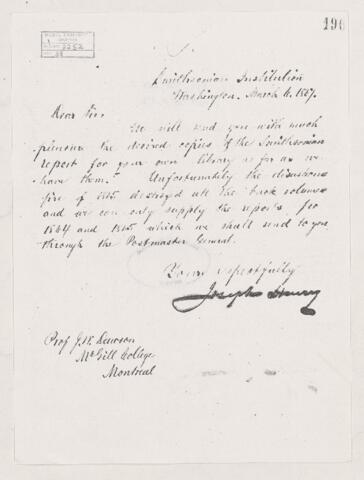 196
Smithsonian Institution
Washington. March 11. 1867.
Dear Sir,
We will send you with much
pleasure the desired copies of the Smithsonian
report for your own library as far as we
have them. Unfortunately the disastrous
fire of 1865 destroyed all the back volumes
and we can only supply the reports for
1864 and 1865 which we shall send to you
through the Postmaster General.
Yours respectfully
Joseph Henry
Prof J.W. Dawson
McGill College
Montreal